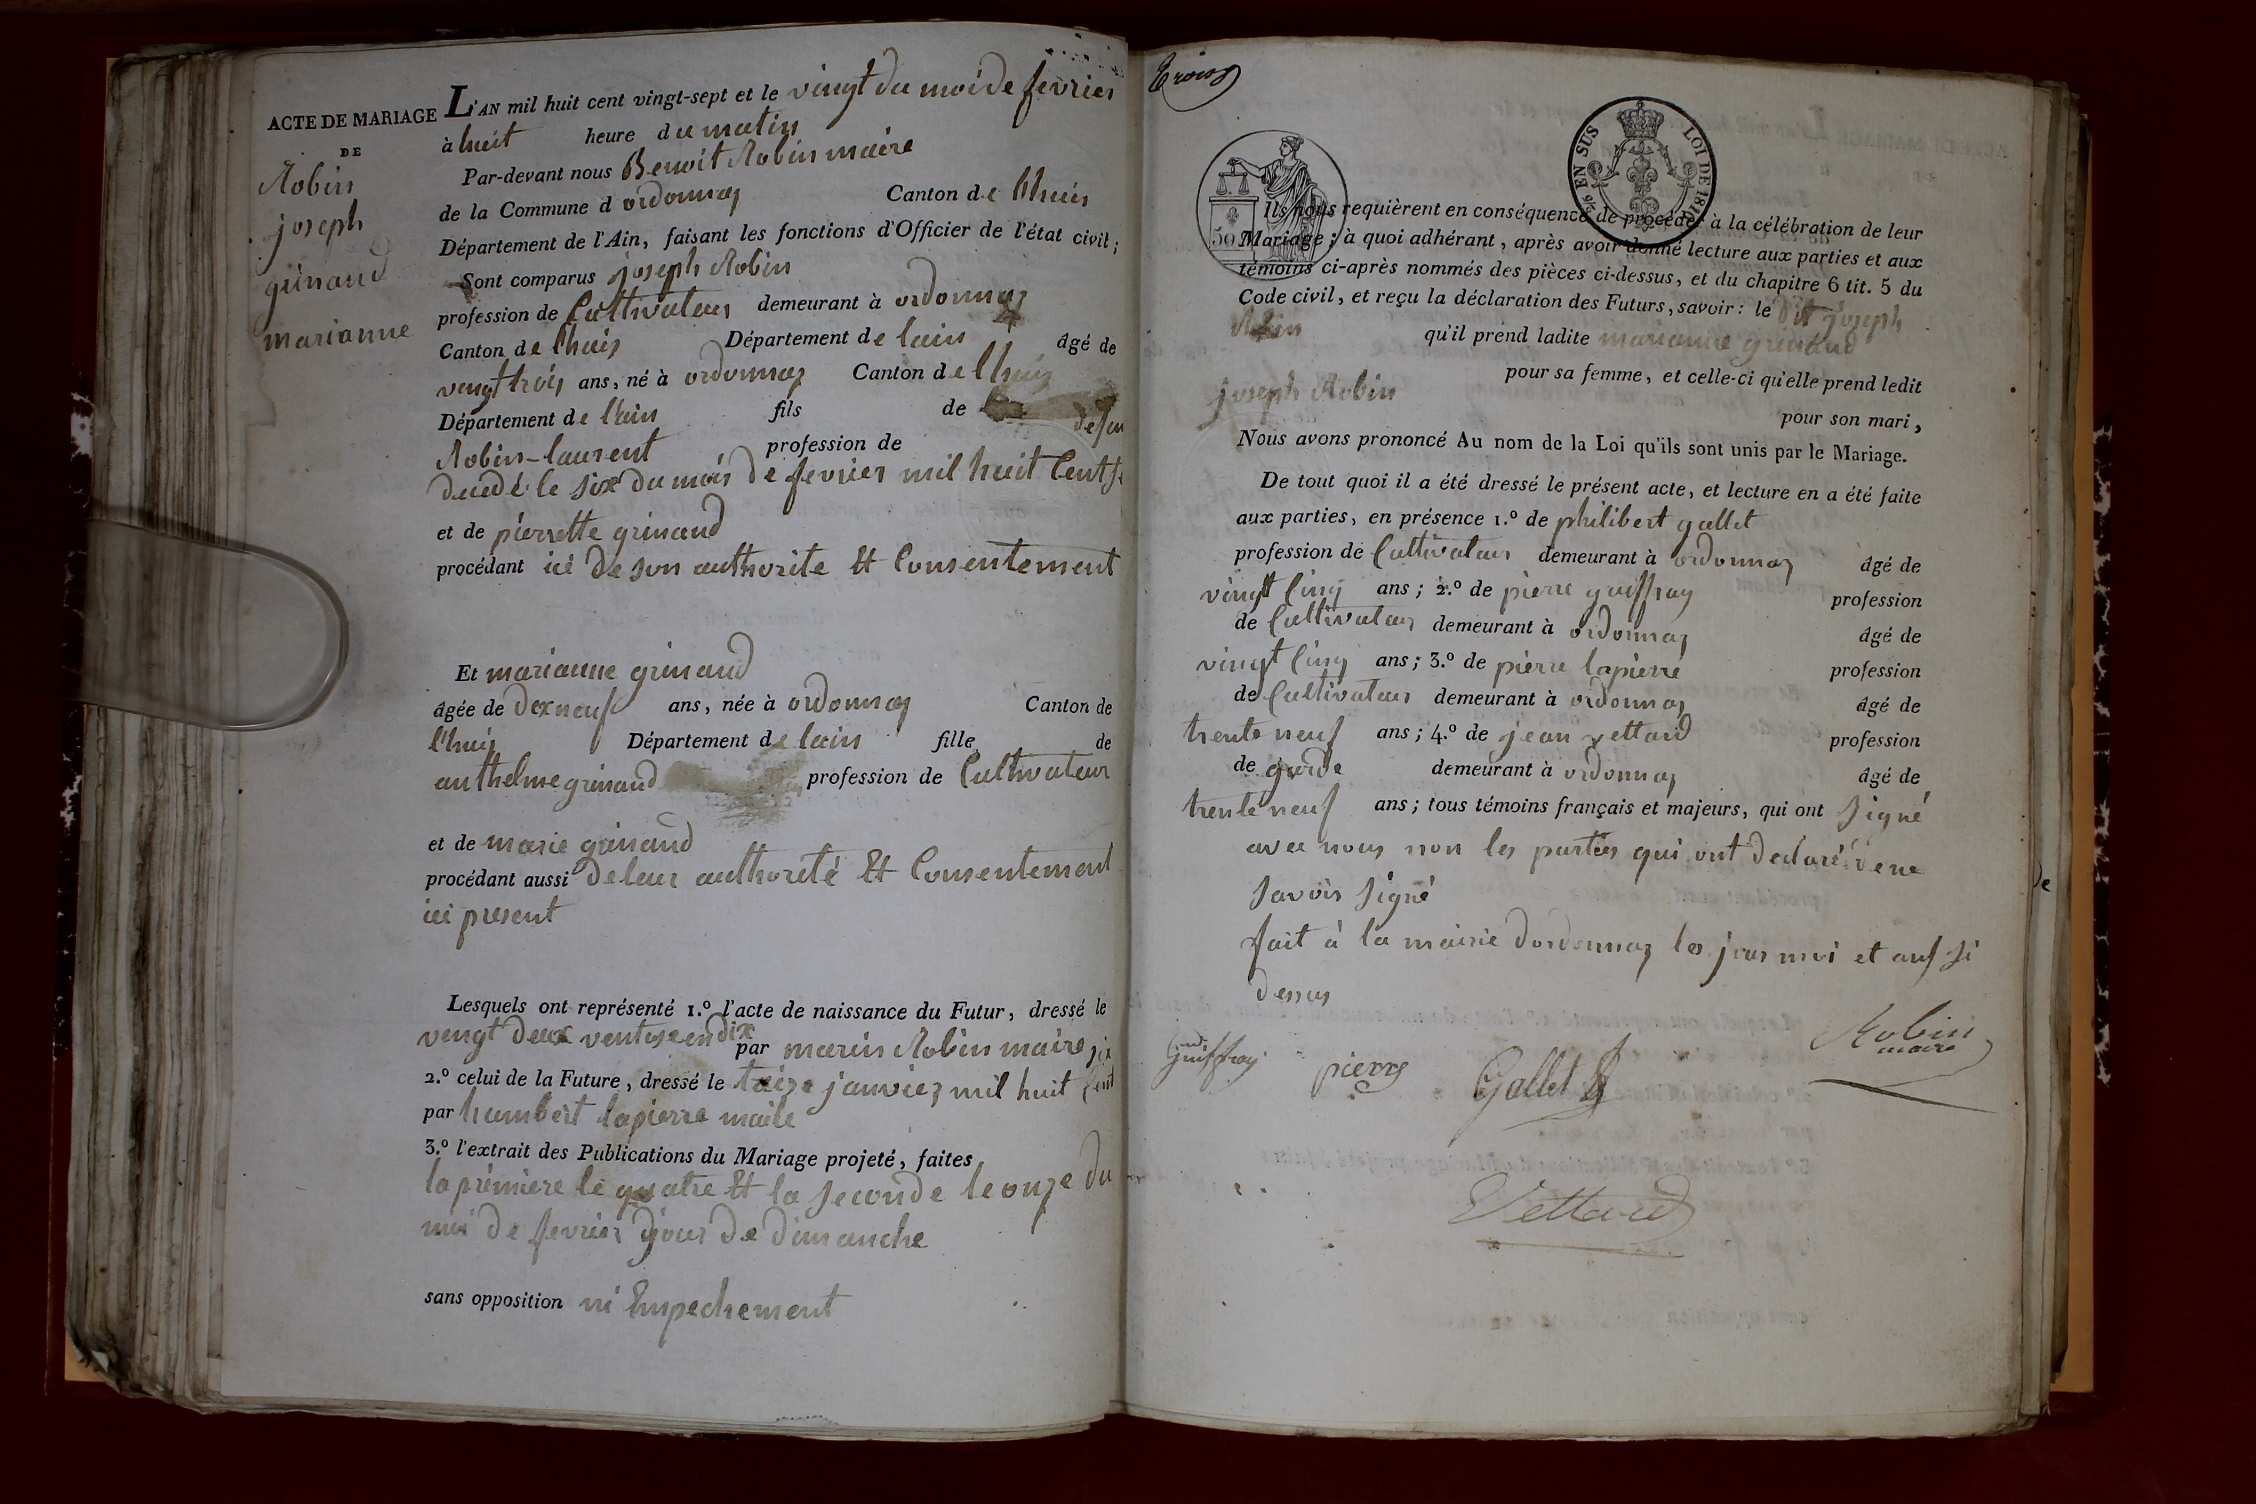 ACTE DE MARIAGE
DE
Robin
joseph
grinand
marianne
L'AN mil huit cent vingt-sept et le vingt du moi de fevrier
à huit heure du matin
Par-devant nous Benoit Robin maire
de la Commune d ordonnaz Canton de lhuis
Département de l'Ain, faisant les fonctions d'Officier de l'état civil;
Sont comparus joseph Robin
profession de Cultivateur demeurant à ordonnaz
Canton de lhuis Département de lain âgé de
vengt trois ans, né à ordonnaz Canton de lhuis
Département de l'ain fils de
Robin-laurent profession de
decedé le six du mois de fevrier mil huit Cent
et de pierrette grinand
procédant ici de son authorite Et Consentement
Et marianne grinand
âgée de dexneuf ans, née à ordonnaz Canton de
l'huis Département de lain fille de
anthelme grinand profession de Cultivateur
et de marie grinand
procédant aussi de leur authorité Et Consentement
ici present
Lesquels ont représenté 1.º l'acte de naissance du Futur, dressé le
vengt deux ventose en dix par marin Robin maire
2.º celui de la Future, dressé le treize janvier mil huit Cent
par humbert lapierre maile
3.º l'extrait des Publications du Mariage projeté, faites
la première le quatre Et la seconde le onze du
moi de fevrier jour de dimanche
sans opposition ni Empechement
EN SUS
LOI DE 1816
50
Ils nous requièrent en conséquence de procéder à la célébration de leur
Mariage; à quoi adhérant, après avoir donné lecture aux parties et aux
témoins ci-après nommés des pièces ci-dessus, et du chapitre 6 tit. 5 du
Code civil, et reçu la déclaration des Futurs, savoir: le dit joseph
Robin qu'il prend ladite marianne grinand
pour sa femme, et celle-ci qu'elle prend ledit
joseph Robin pour son mari,
Nous avons prononcé Au nom de la Loi qu'ils sont unis par le Mariage.
De tout quoi il a été dressé le présent acte, et lecture en a été faite
aux parties, en présence 1.º de philibert gallet
profession de Cultivateur demeurant à ordonnaz âgé de
vingt Cinq ans; 2.º de pierre guiffray profession
de Cultivateur demeurant à ordonnaz âgé de
vingt Cinq ans; 3.º de pierre lapierre profession
de Cultivateur demeurant à ordonnaz âgé de
trente neuf ans; 4.º de jean vettard profession
de garde demeurant à ordonnaz âgé de
trente neuf ans; tous témoins français et majeurs, qui ont signé
avec nous non les parties qui ont declaré de ne
savoir signé
fait à la mairie dordonnaz les jour moi et an
dessus
Guiffray pierre Gallet Robin
maire
Vettard